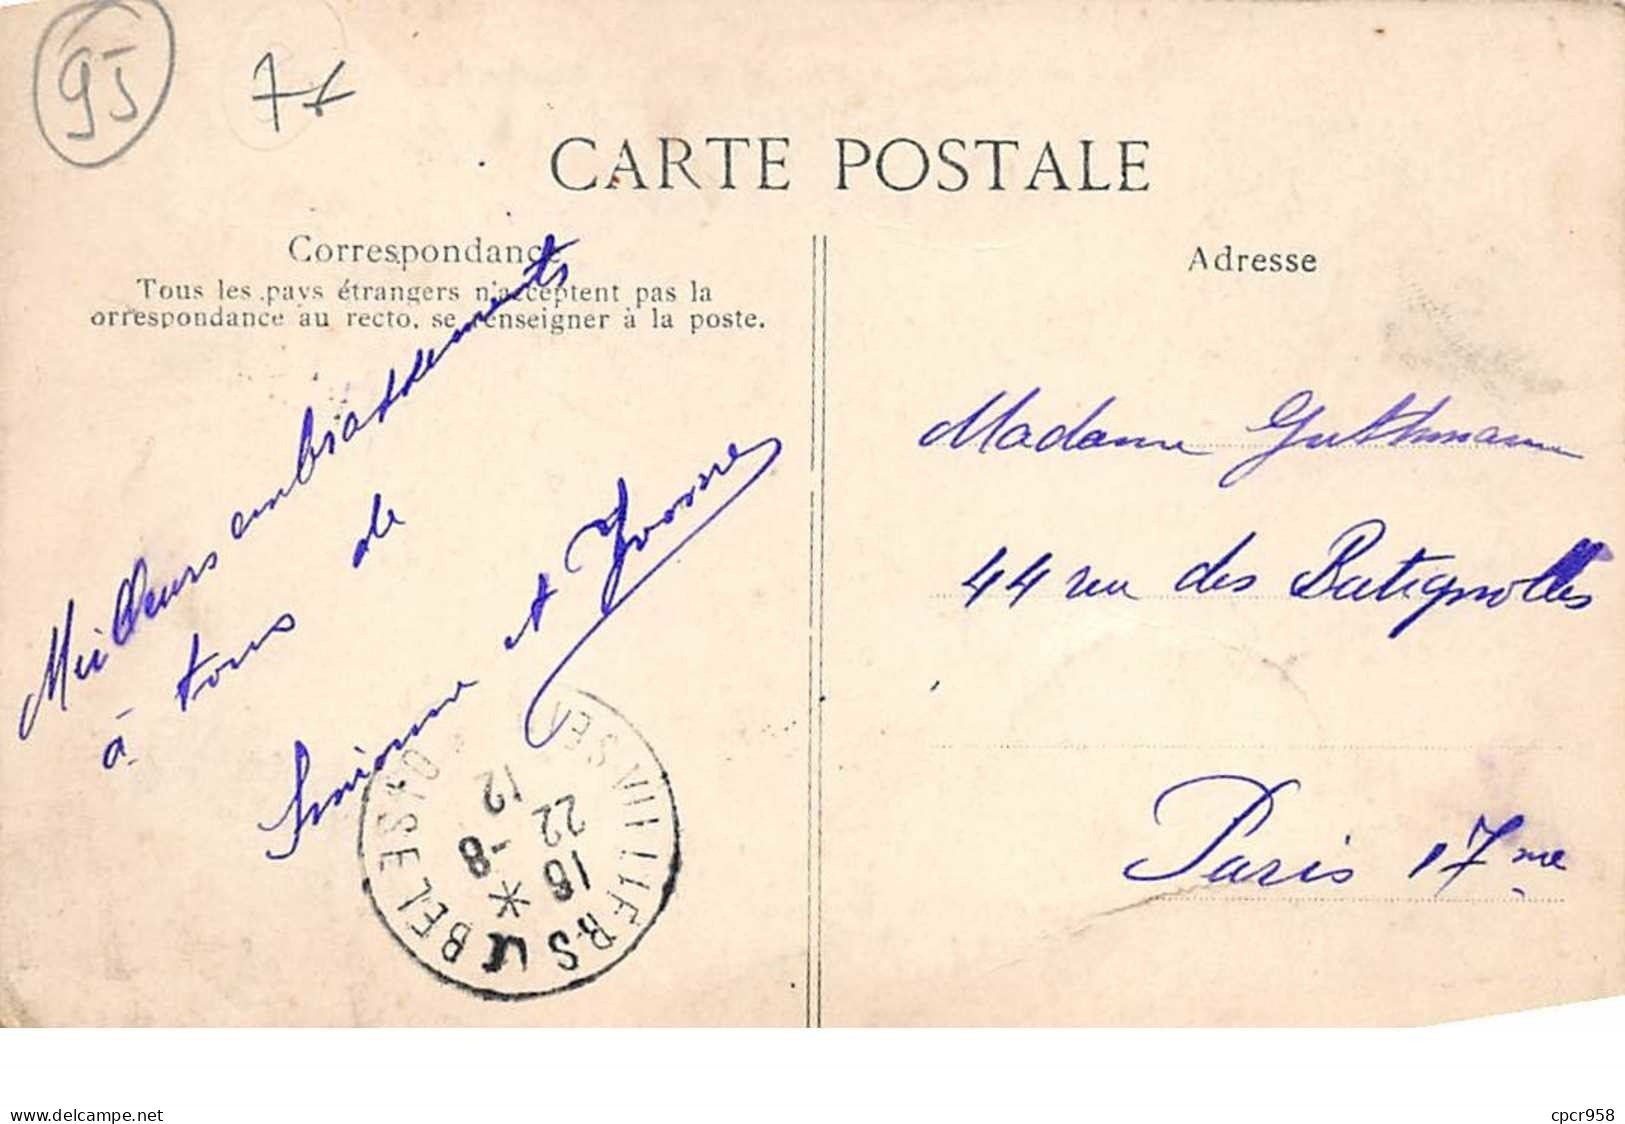 95
CARTE POSTALE
Correspondance
Tous les pays étrangers n'acceptent pas la
orrespondance au recto, se renseigner à la poste.
Meilleurs embrassements
à tous de
Simonne et Yvonne
Adresse
Madame Guthmann
44 rue des Batignolles
Paris 17me
VILLIERS LE BEL SEINE ET OISE
12 -8
22
18
www.delcampe.net
cpcr958